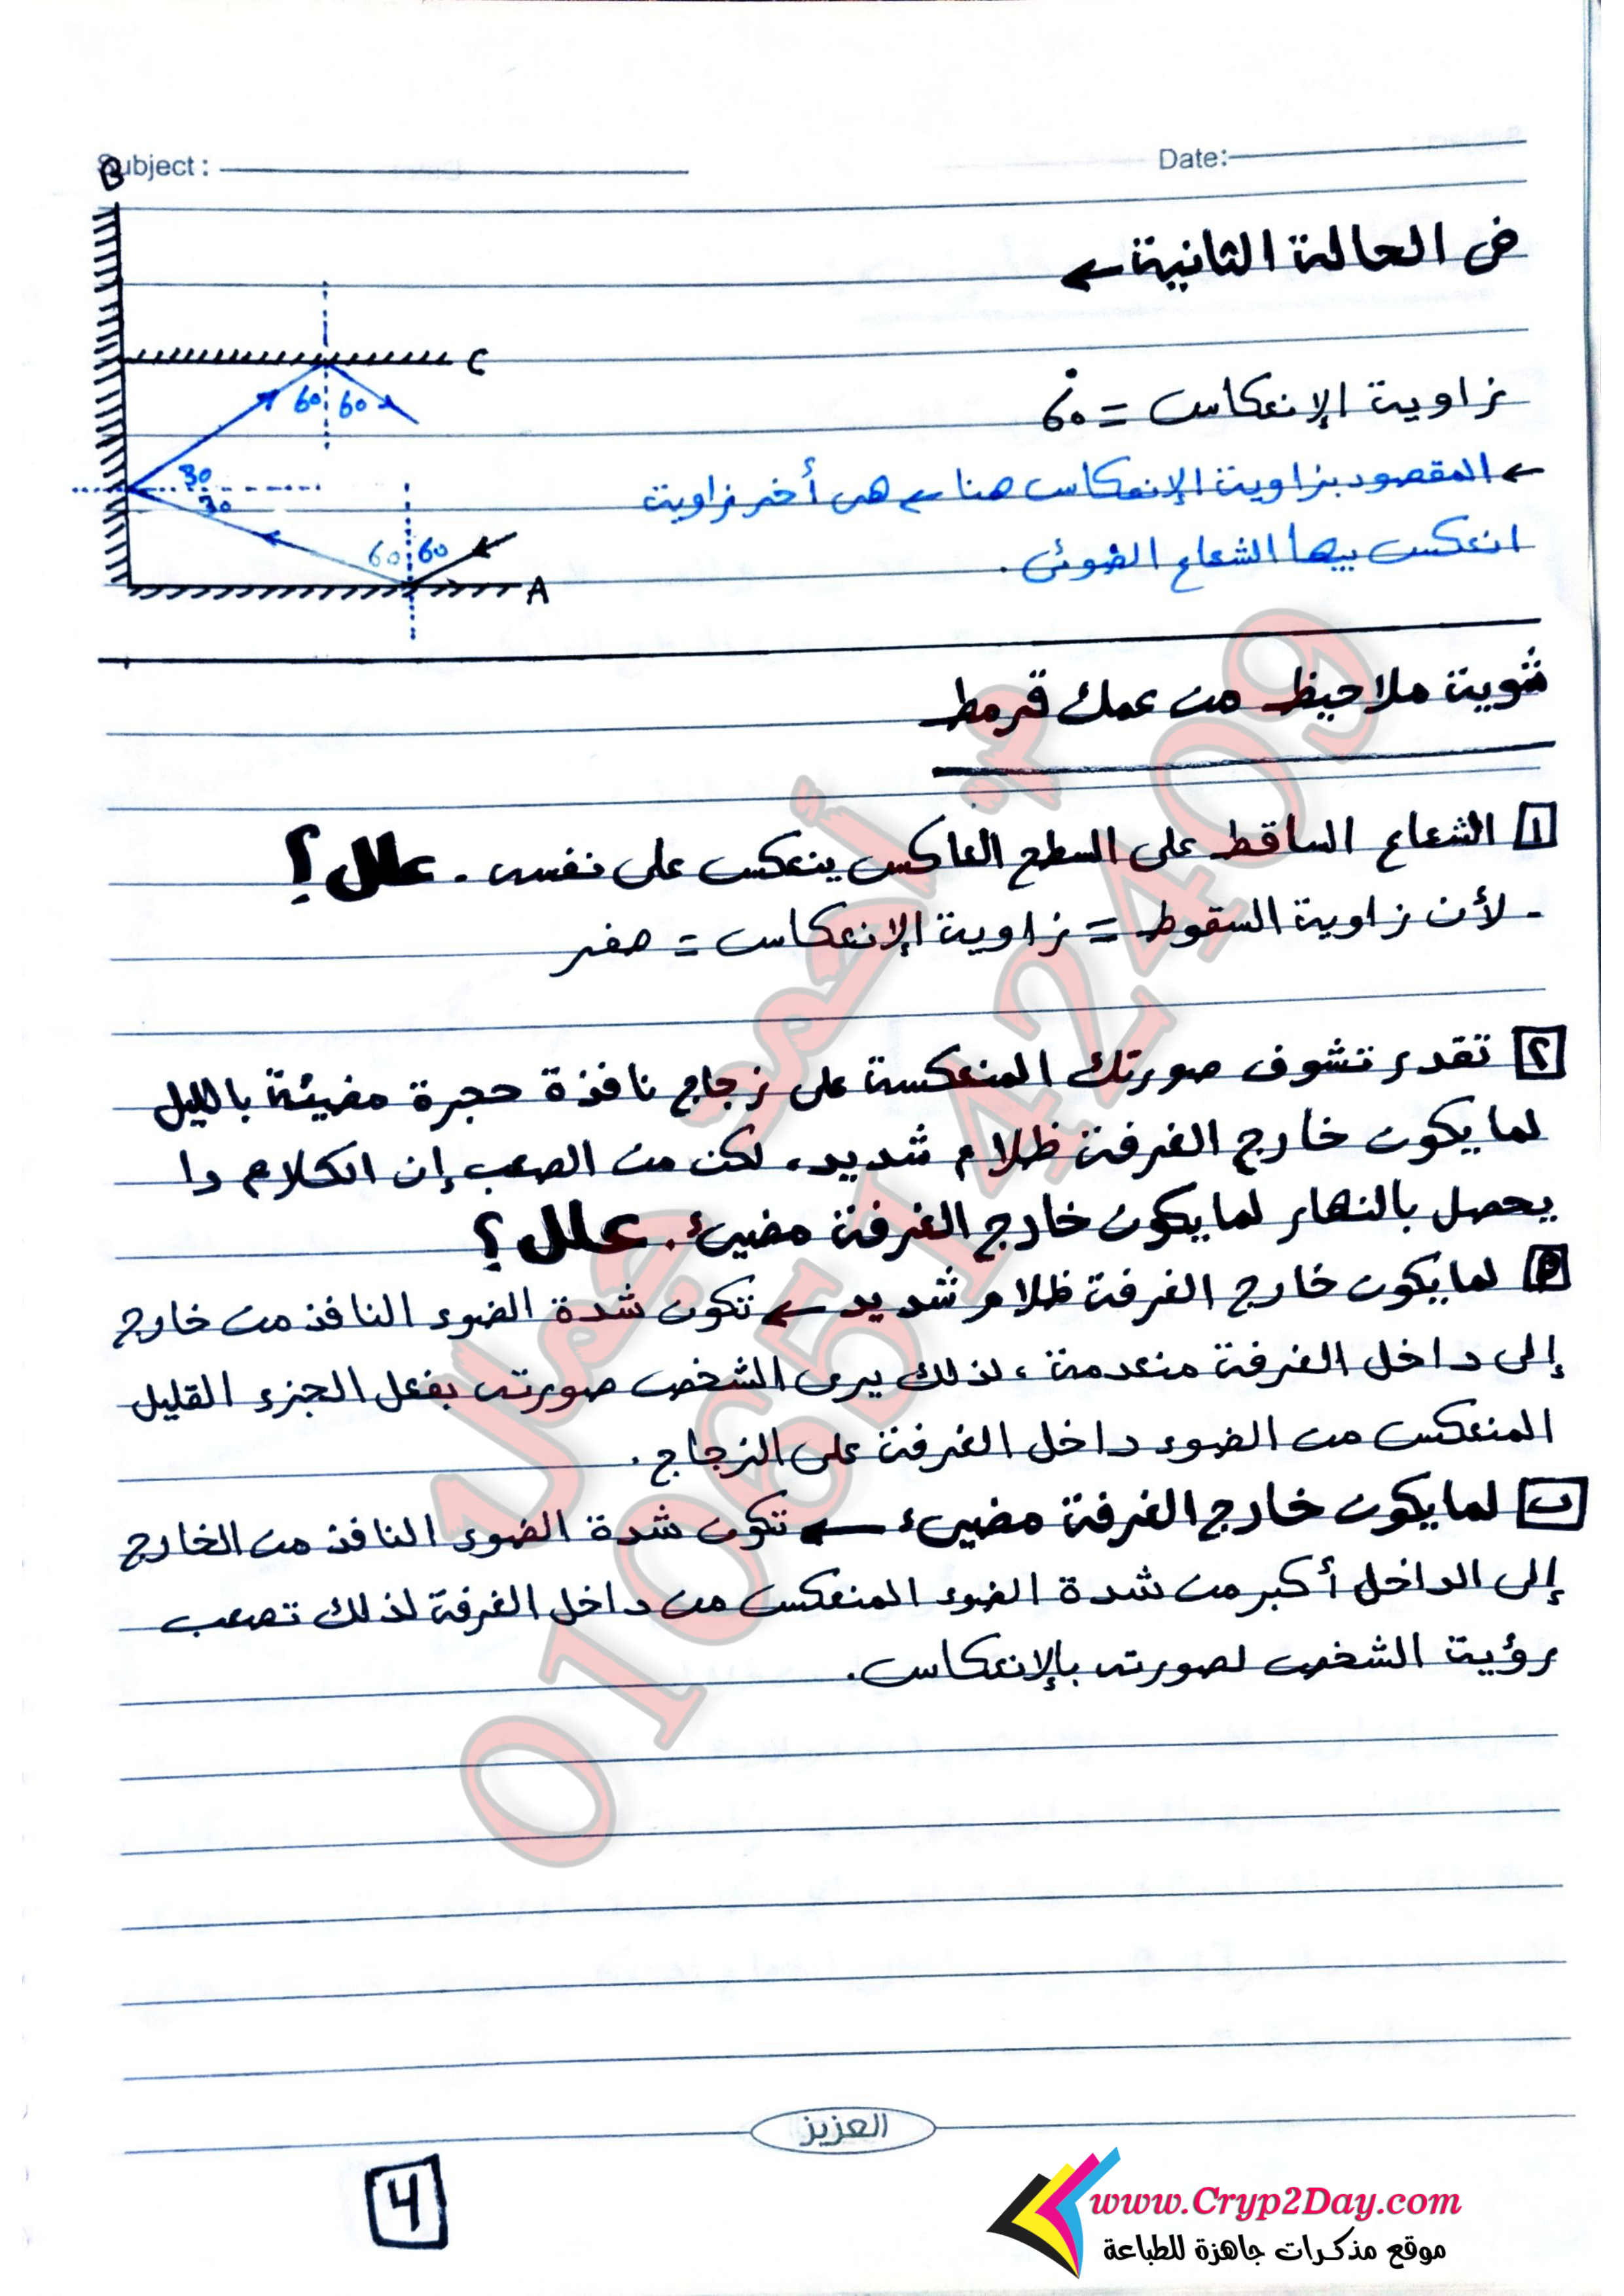 Subject :
Date:
B
في الحالة الثانية ←
C
60 60
زاوية الإنعكاس = 60°
30
30
← المقصود بزاوية الإنعكاس هنا ← هى أخر زاوية
انعكس بيها الشعاع الضوئى .
60 60
A
شوية ملاحيظ من عمك قرمط
١ الشعاع الساقط على السطح العاكس ينعكس على نفسه . علل ؟
- لأن زاوية السقوط = زاوية الإنعكاس = صفر
٢ تقدر تشوف صورتك المنعكسة على زجاج نافذة حجرة مضيئة بالليل
لما يكون خارج الغرفة ظلام شديد، لكن من الصعب إن الكلام دا
يحصل بالنهار لما يكون خارج الغرفة مضيئ . علل ؟
لما يكون خارج الغرفة ظلام شديد ← تكون شدة الضوء النافذ من خارج
إلى داخل الغرفة منعدمة ، لذلك يرى الشخص صورته بفعل الجزء القليل
المنعكس من الضوء داخل الغرفة على الزجاج .
ب لما يكون خارج الغرفة مضيئ ← تكون شدة الضوء النافذ من الخارج
إلى الداخل أكبر من شدة الضوء المنعكس من داخل الغرفة لذلك تصعب
رؤية الشخص لصورته بالإنعكاس .
م. أحمد جمال
01065142409
العزيز
4
www.Cryp2Day.com
موقع مذكرات جاهزة للطباعة